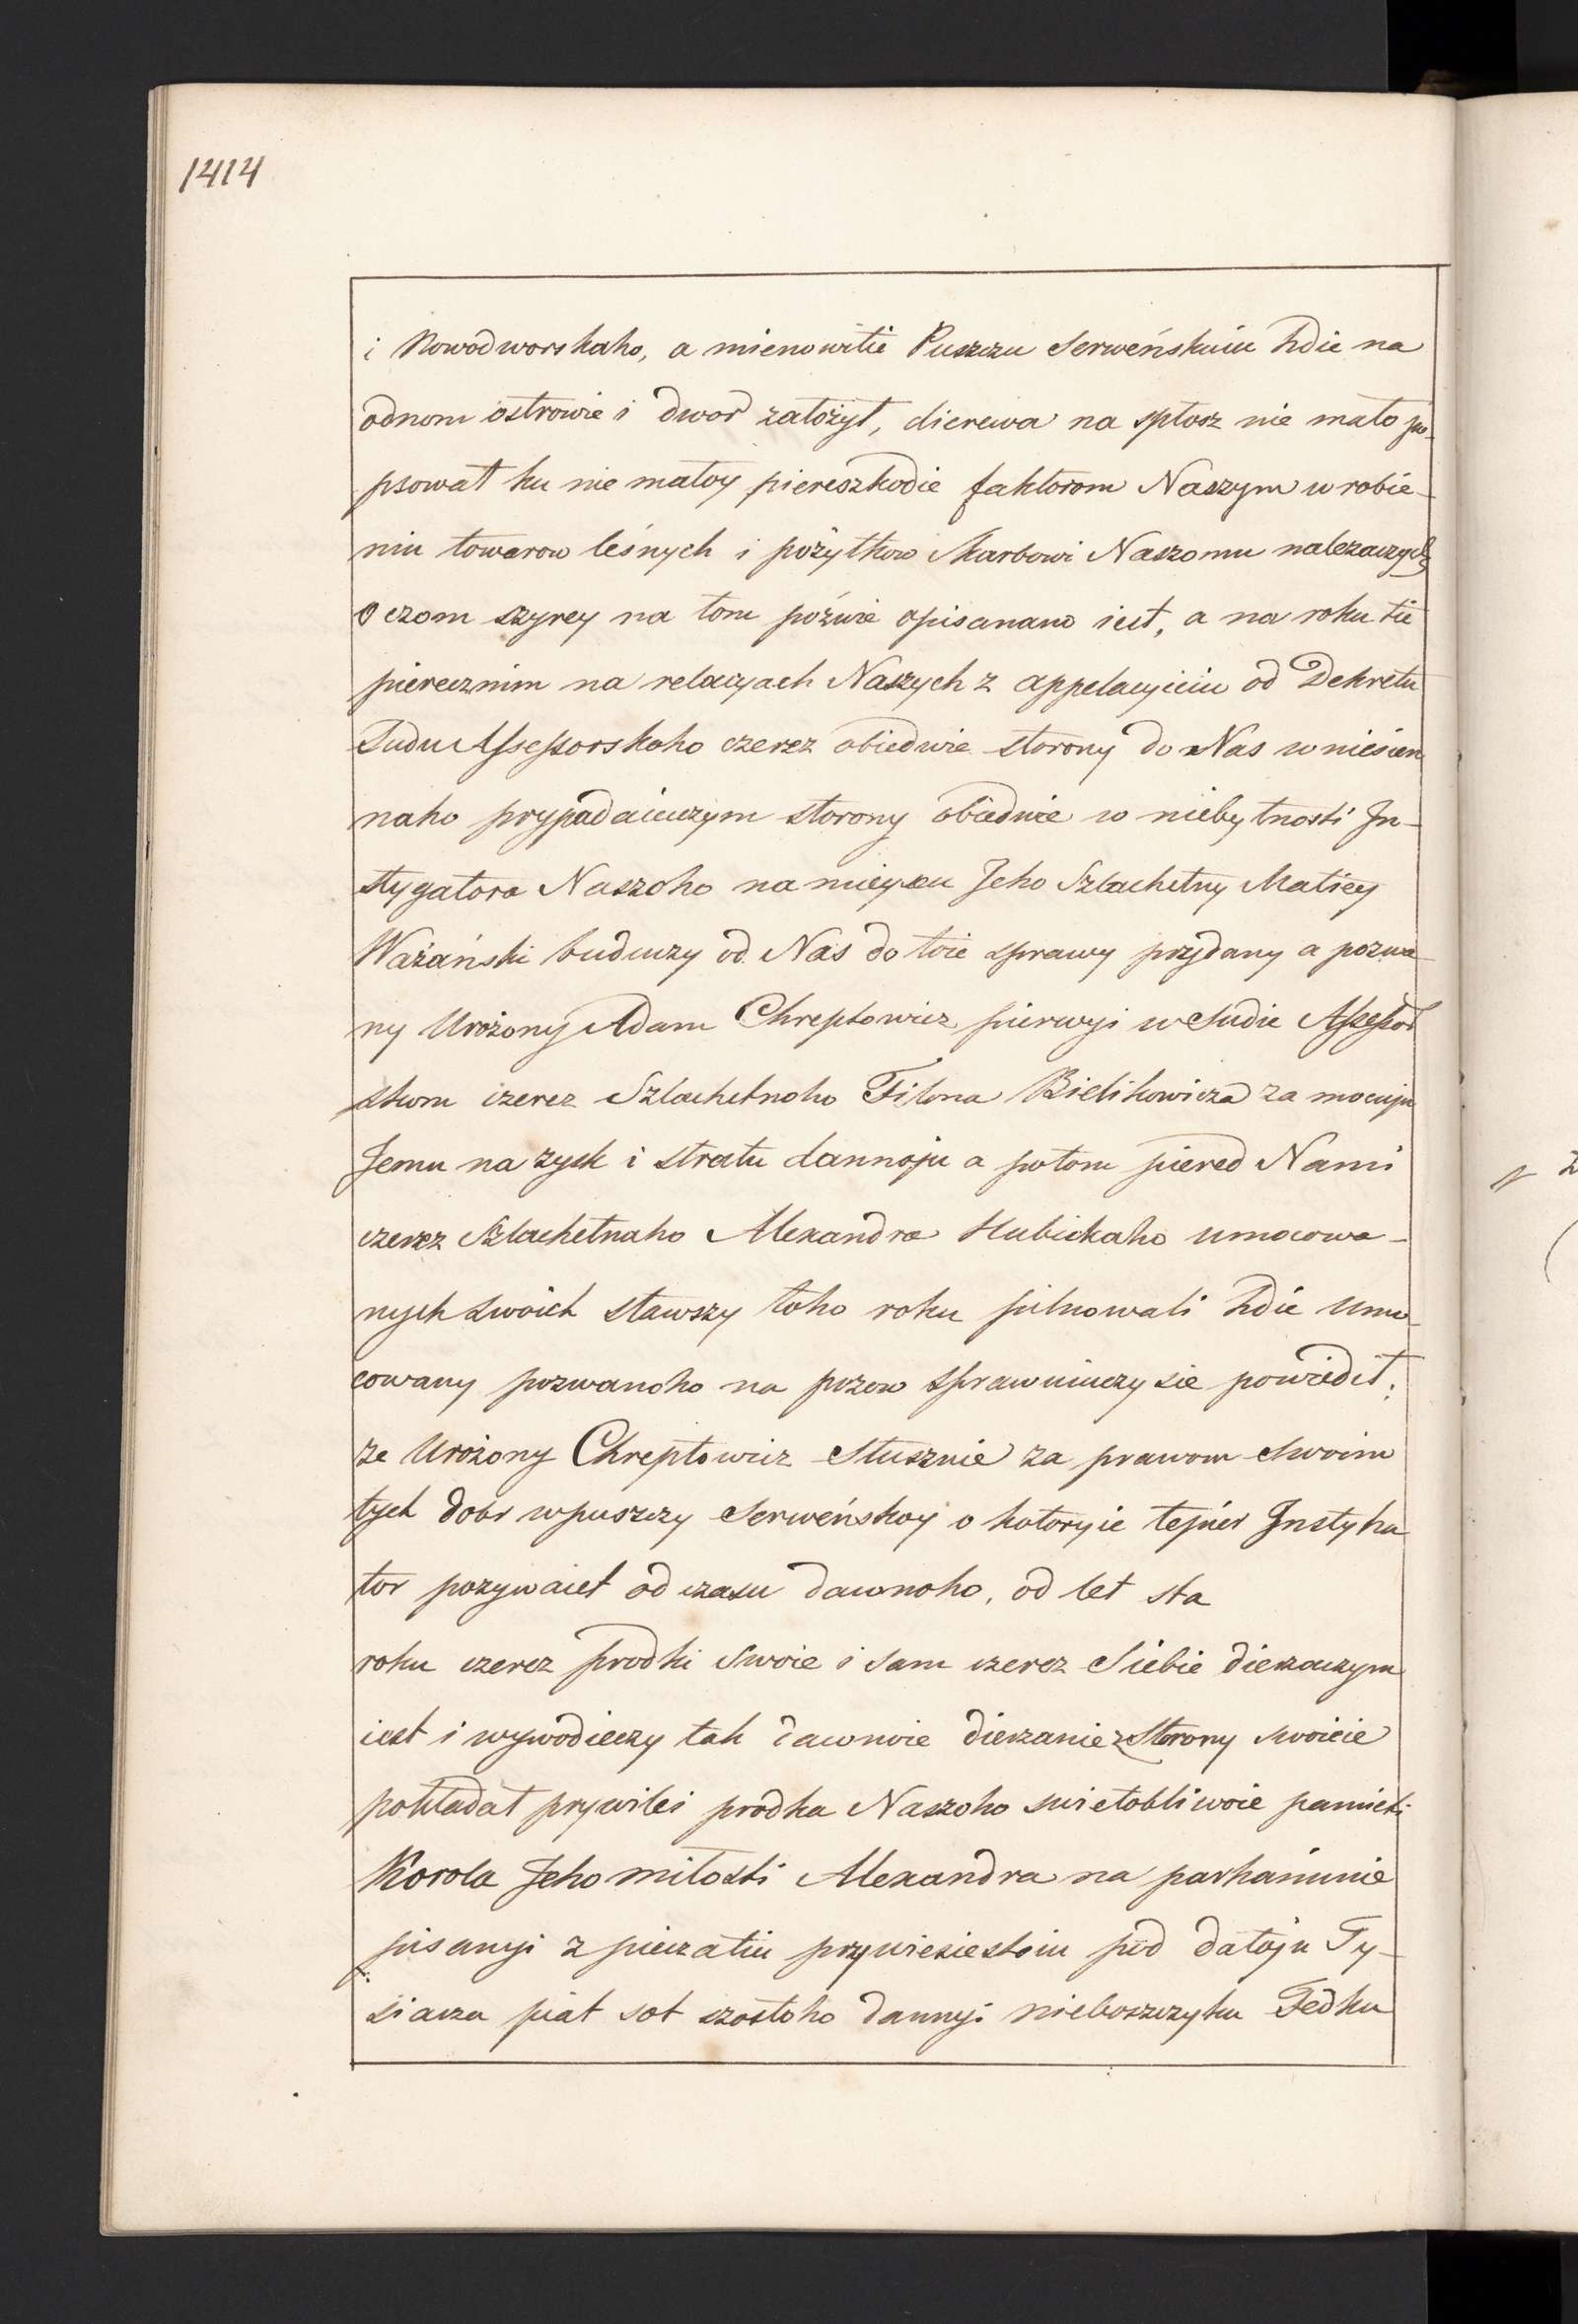 1414
i Nowodworskaho, a mienowitie Puszczu Serweńskuiu hdie na
odnom ostrowie i dwor założył, dierewa na spłosz nie mało po-
psował ku nie małoy piereszkodie faktorom Naszym w robie-
niu towarow leśnych i pożytkow Skarbowi Naszomu nalezaczych
O czom szyrey na tom poźwie opisanano iest, a na roku tie
pierecznim na relacyach Naszych z appelacyieiu od Dekretu
Sudu Assessorskoho czerez obiedwie storony do Nas wniesien
naho prypadaiuczym storony obiedwie w niebytnosti In-
stygatora Naszoho na mieyscu Jeho Szlachetny Matiey
Ważański buduczy od Nas do toie sprawy przydany a pozwa-
ny Urożony Adam Chreptowicz pierwyi w Sudie Assessor
skom czerez Szlachetnoho Filona Bielikowicza za mocuju
Jemu na zysk i stratu dannoju a potom piered Nami
czerez Szlachetnaho Alexandra Hubickaho umocowa-
nych swoich stawszy toho roku pilnowali hdie umo-
cowany pozwanoho na pozow sprawuiuczysie powiedił:
że Urożony Chreptowicz słusznie za prawom swoim
tych dobr w puszczy Serweńskoy o kotoryie tepier Instyha
tor pozywaiet od czasu dawnoho, od let sta
roku czerez prodki swoie i sam czerez Siebie dierzaczym
iest i wywodieczy tak dawnoie dierzanie z Storony swoieie
pokładał prywilei prodka Naszoho swietobliwoie pamieti
Korola Jeho miłosti Alexandra na parhaminie
pisanyi z pieczatiu prywiesistoiu pod datoju Ty-
siacza piat sot szostoho dannyi nieboszczyku Fedku